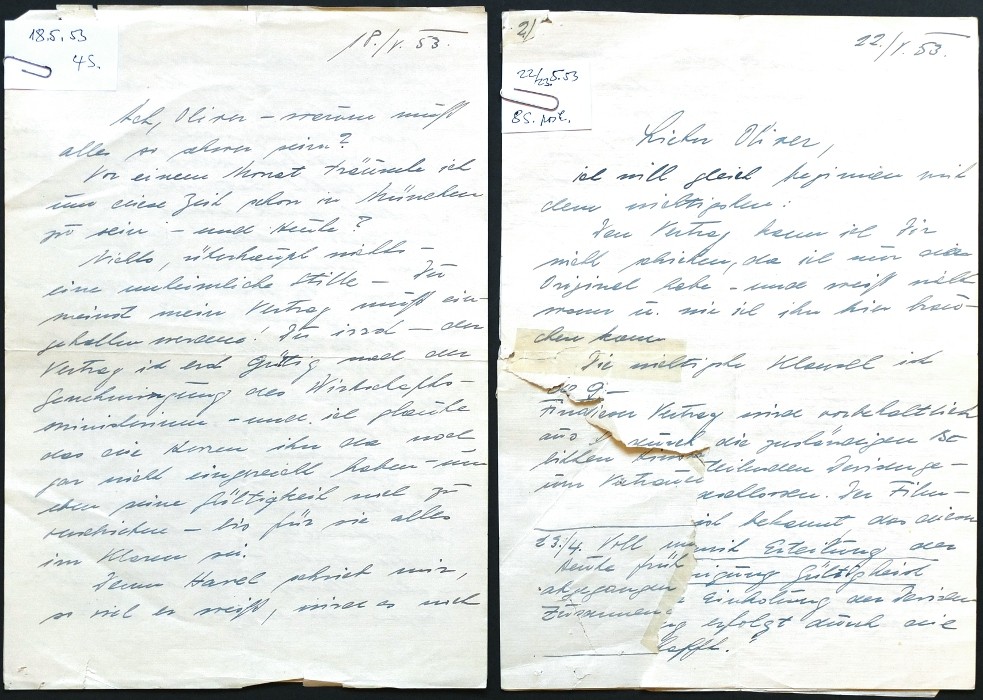 18.5.53
4S.
18./V. 53.
Ach, Oliver – warum muß
alles so schwer sein?
Vor einem Monat träumte ich
um diese Zeit schon in München
zu sein – und heute?
Nichts, überhaupt nichts –
eine unheimliche Stille – Du
meinst mein Vertrag muß ein-
gehalten werden! Du irrst – der
Vertrag ist erst Gültig nach der
Genehmingung des Wirtschafts-
ministeriums – und ich glaube
das die Herren ihn da noch
gar nicht eingereicht haben – um
eben seine Gültigkeit noch zu
verschieben – bis für sie alles
im Klaren sei.
Denn Havel schrieb mir,
so viel er weiß, wird es noch
2/
22./V. 53.
22/23.5.53
8S.
Lieber Oliver,
ich will gleich beginnen mit
dem wichtigsten:
Den Vertrag kann ich Dir
nicht schicken, da ich nur das
Original habe – und weiß nicht
wann u. wie ich ihn hier brau-
chen kann
Die wichtigste Klausel ist
Vertrag wird vorbehaltlich
aus durch die zuständigen
teilenden Devisenge-
um Vertrauen
schlossen. Der Film-
ist bekannt das diesen
23./4. Voll
mit Erteilung der
Heute früh
igung Gültigkeit
abgegangen
Einholung der Devisen
Zusammen
g erfolgt durch die